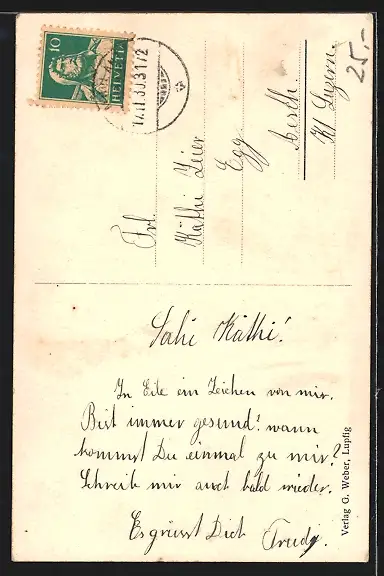 10
HELVETIA
17.II.30.31/2
25.-
Frl.
Käthi Zeier
Egg
Aesch.
Kt Luzern.
Sali Käthi!
In Eile ein Zeichen von mir.
Bist immer gesund? wann
kommst Du einmal zu mir?
Schreib mir auch bald wieder.
Es grüsst Dich
Trudy.
Verlag G. Weber, Lupfig